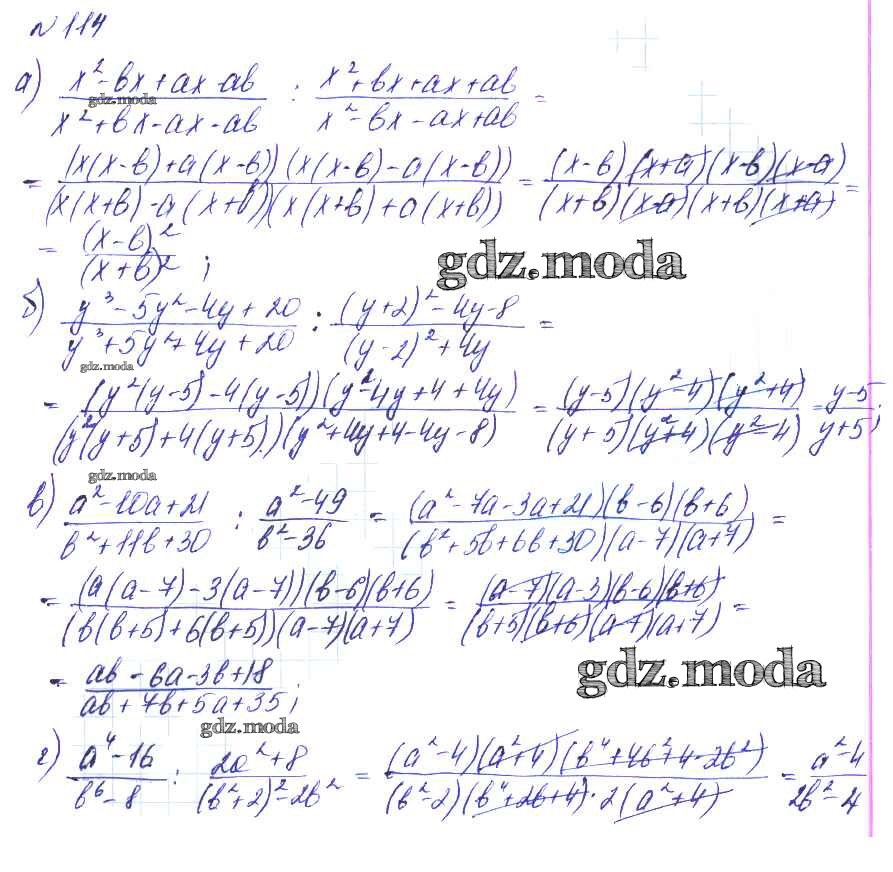 №114
а) (x²-bx+ax-ab)/(x²+bx-ax-ab) : (x²+bx+ax+ab)/(x²-bx-ax+ab) =
gdz.moda
= ((x(x-b)+a(x-b))(x(x-b)-a(x-b)))/((x(x+b)-a(x+b))(x(x+b)+a(x+b))) = ((x-b)(x+a)(x-b)(x-a))/((x+b)(x-a)(x+b)(x+a)) =
= (x-b)²/(x+b)² ;
gdz.moda
б) (y³-5y²-4y+20)/(y³+5y²+4y+20) : ((y+2)²-4y-8)/((y-2)²+4y) =
gdz.moda
= ((y²(y-5)-4(y-5))(y²-4y+4+4y))/((y²(y+5)+4(y+5))(y²+4y+4-4y-8)) = ((y-5)(y²-4)(y²+4))/((y+5)(y²+4)(y²-4)) = (y-5)/(y+5);
gdz.moda
в) (a²-10a+21)/(b²+11b+30) : (a²-49)/(b²-36) = ((a²-7a-3a+21)(b-6)(b+6))/((b²+5b+6b+30)(a-7)(a+7)) =
= ((a(a-7)-3(a-7))(b-6)(b+6))/((b(b+5)+6(b+5))(a-7)(a+7)) = ((a-7)(a-3)(b-6)(b+6))/((b+5)(b+6)(a-7)(a+7)) =
= (ab-6a-3b+18)/(ab+7b+5a+35);
gdz.moda
gdz.moda
г) (a⁴-16)/(b⁶-8) : (2a²+8)/((b²+2)²-2b²) = ((a²-4)(a²+4)(b⁴+4b²+4-2b²))/((b²-2)(b⁴+2b+4)·2(a²+4)) = (a²-4)/(2b²-4)